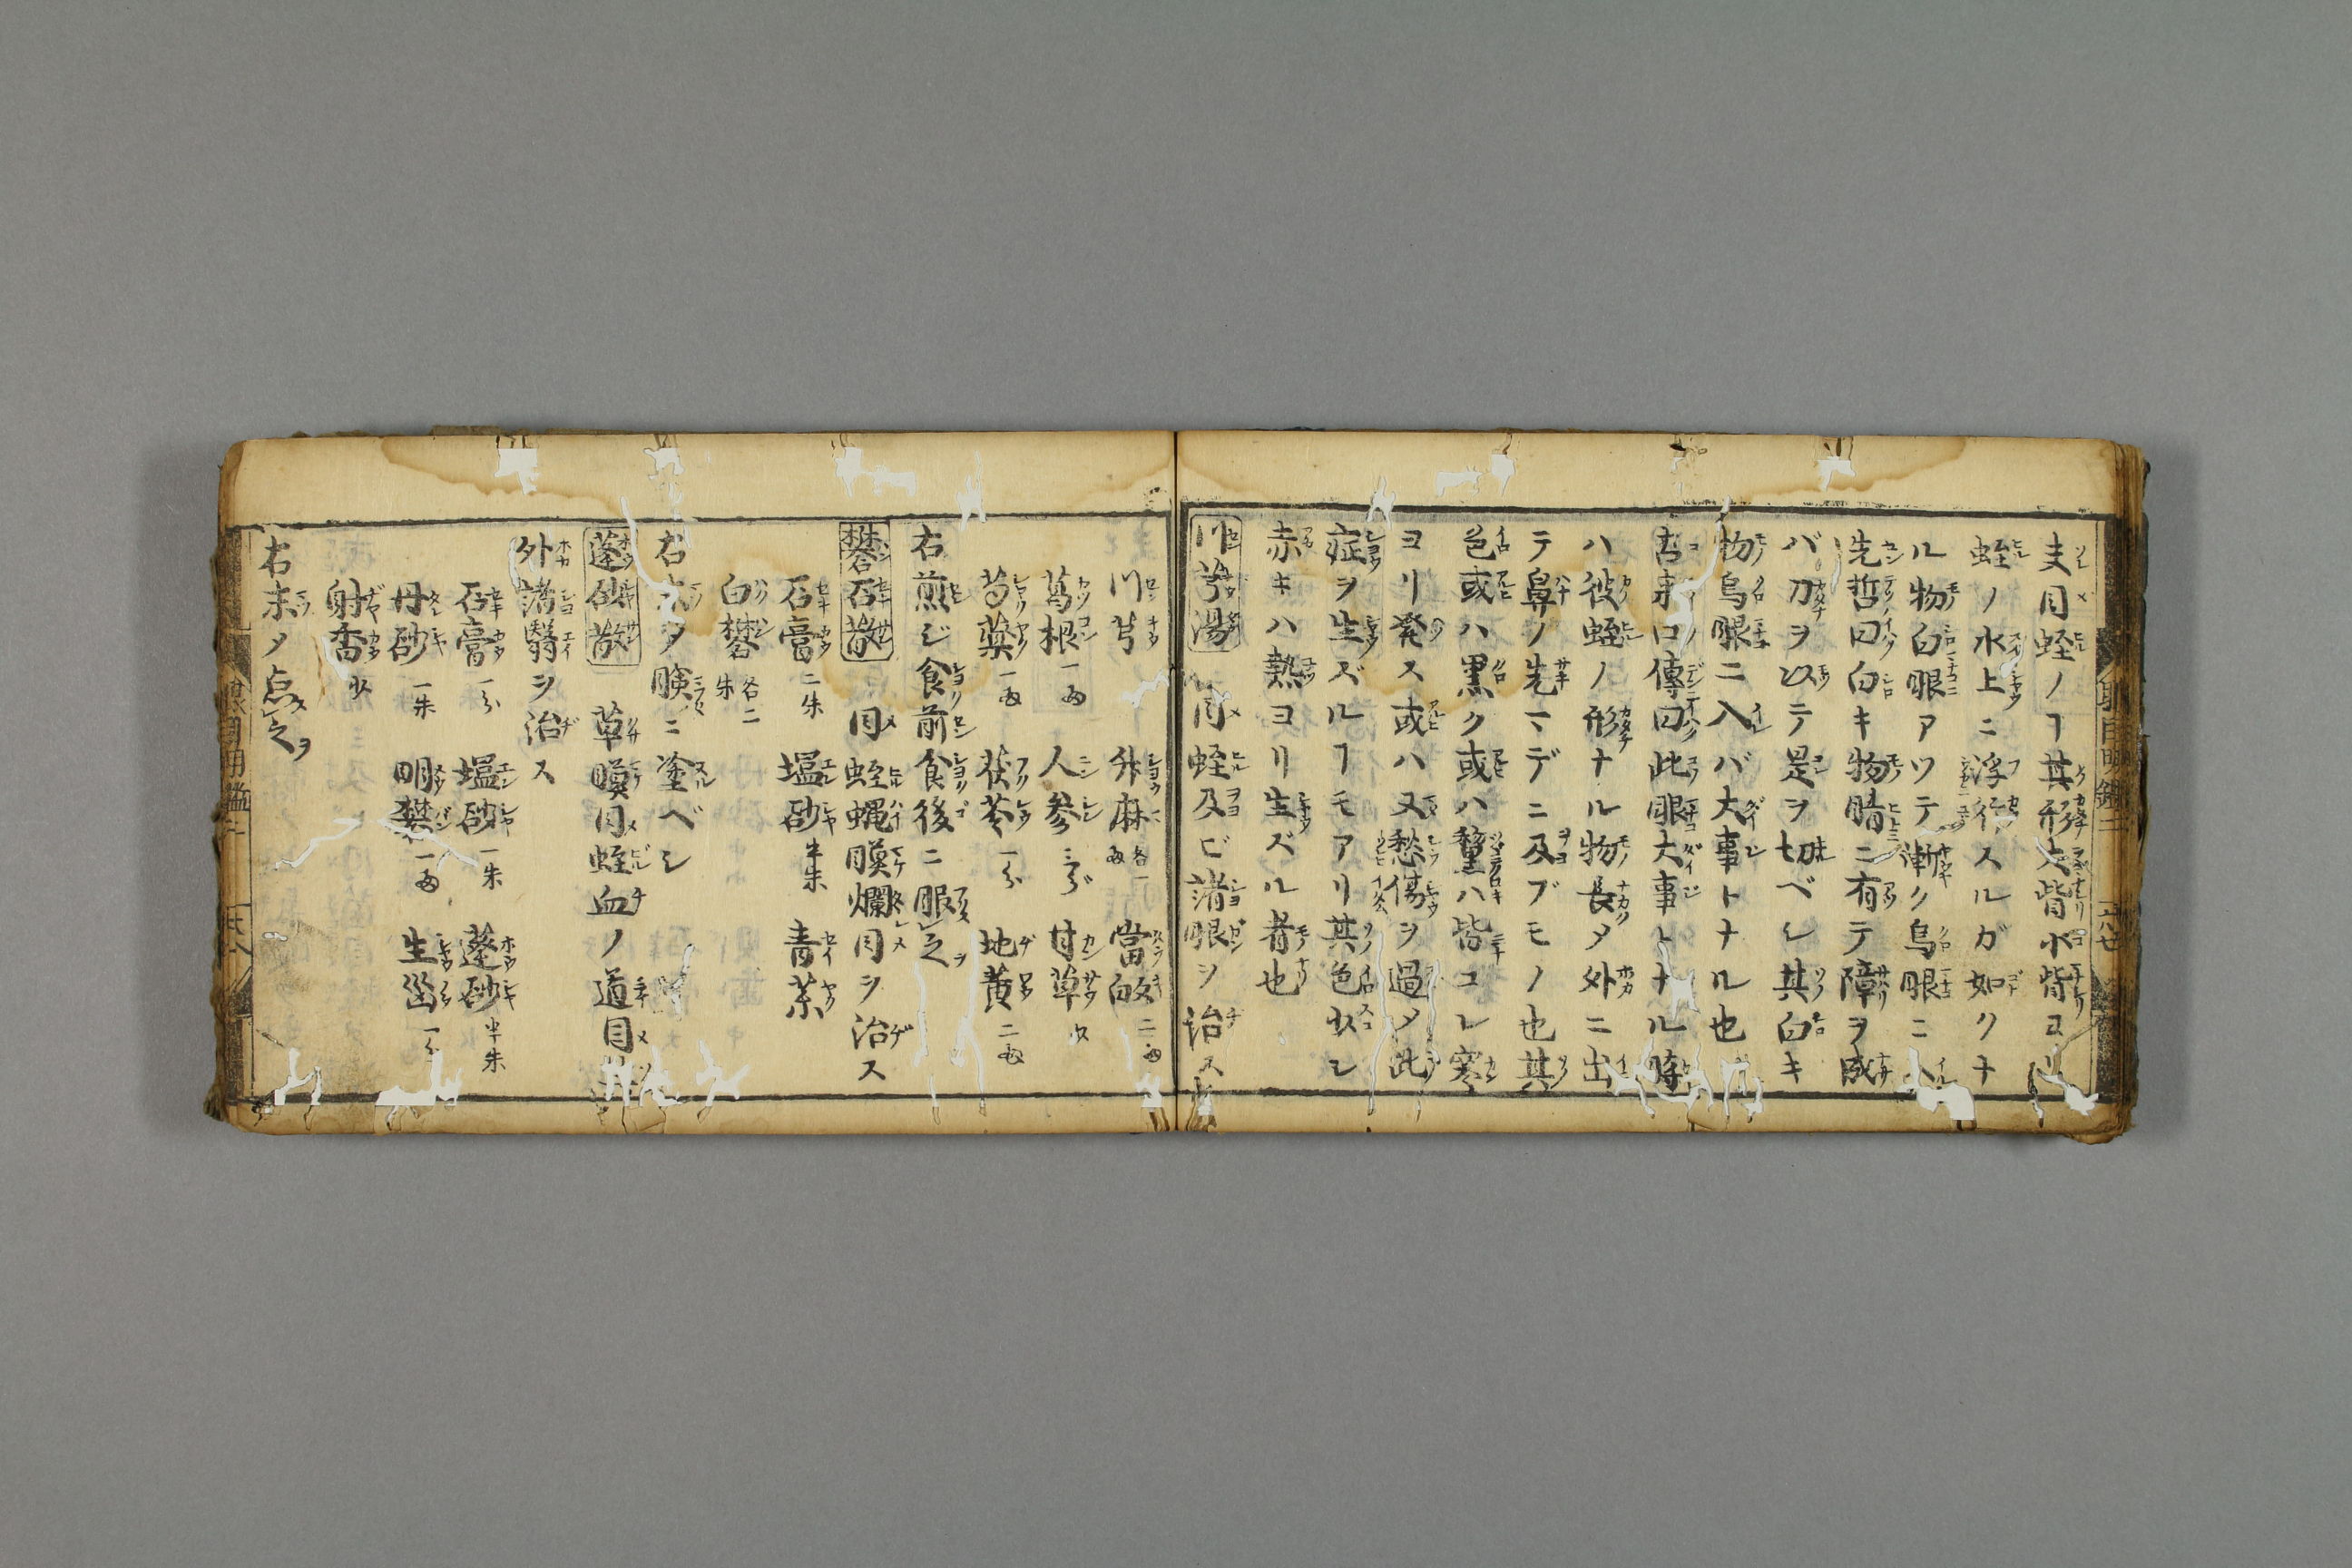 夫目蛭ノヿ其形大眥小眥ヨリ
蛭ノ水上ニ浮行スルガ如クナ
ル物白眼アツテ漸ク烏眼ニ入
先哲曰白キ物睛ニ有テ障ヲ成
バ刀ヲ以テ是ヲ切ベシ其白キ
物烏眼ニ入バ大事トナル也
古来口傳曰此眼大事トナル時
ハ彼蛭ノ形ナル物長メ外ニ出
テ鼻ノ先マデニ及ブモノ也其
色或ハ黒ク或ハ鰲ハ皆コレ寒
ヨリ発ス或ハ又愁傷ヲ過メ此
症ヲ生ズルヿモアリ其色如シ
赤キハ熱ヨリ生ズル者也
川芎湯 目蛭及ビ諸眼ヲ治ス
川芎 升麻各一両 當皈二両
葛根一両 人参三分 甘草少
芍薬一両 茯苓一分 地黄二両
右煎ジ食前食後ニ服之
礬石散 目蛭蝿瞙爛目ヲ治ス
石膏二朱 塩砂半朱 青薬
白礬各二朱
右末メ瞼ニ塗ベシ
蓬砂散 草瞙目蛭血ノ道目
外諸翳ヲ治ス
石膏一分 塩砂一朱 蓬砂半朱
丹砂一朱 明礬一両 生脳一分
射香少
右末メ点之